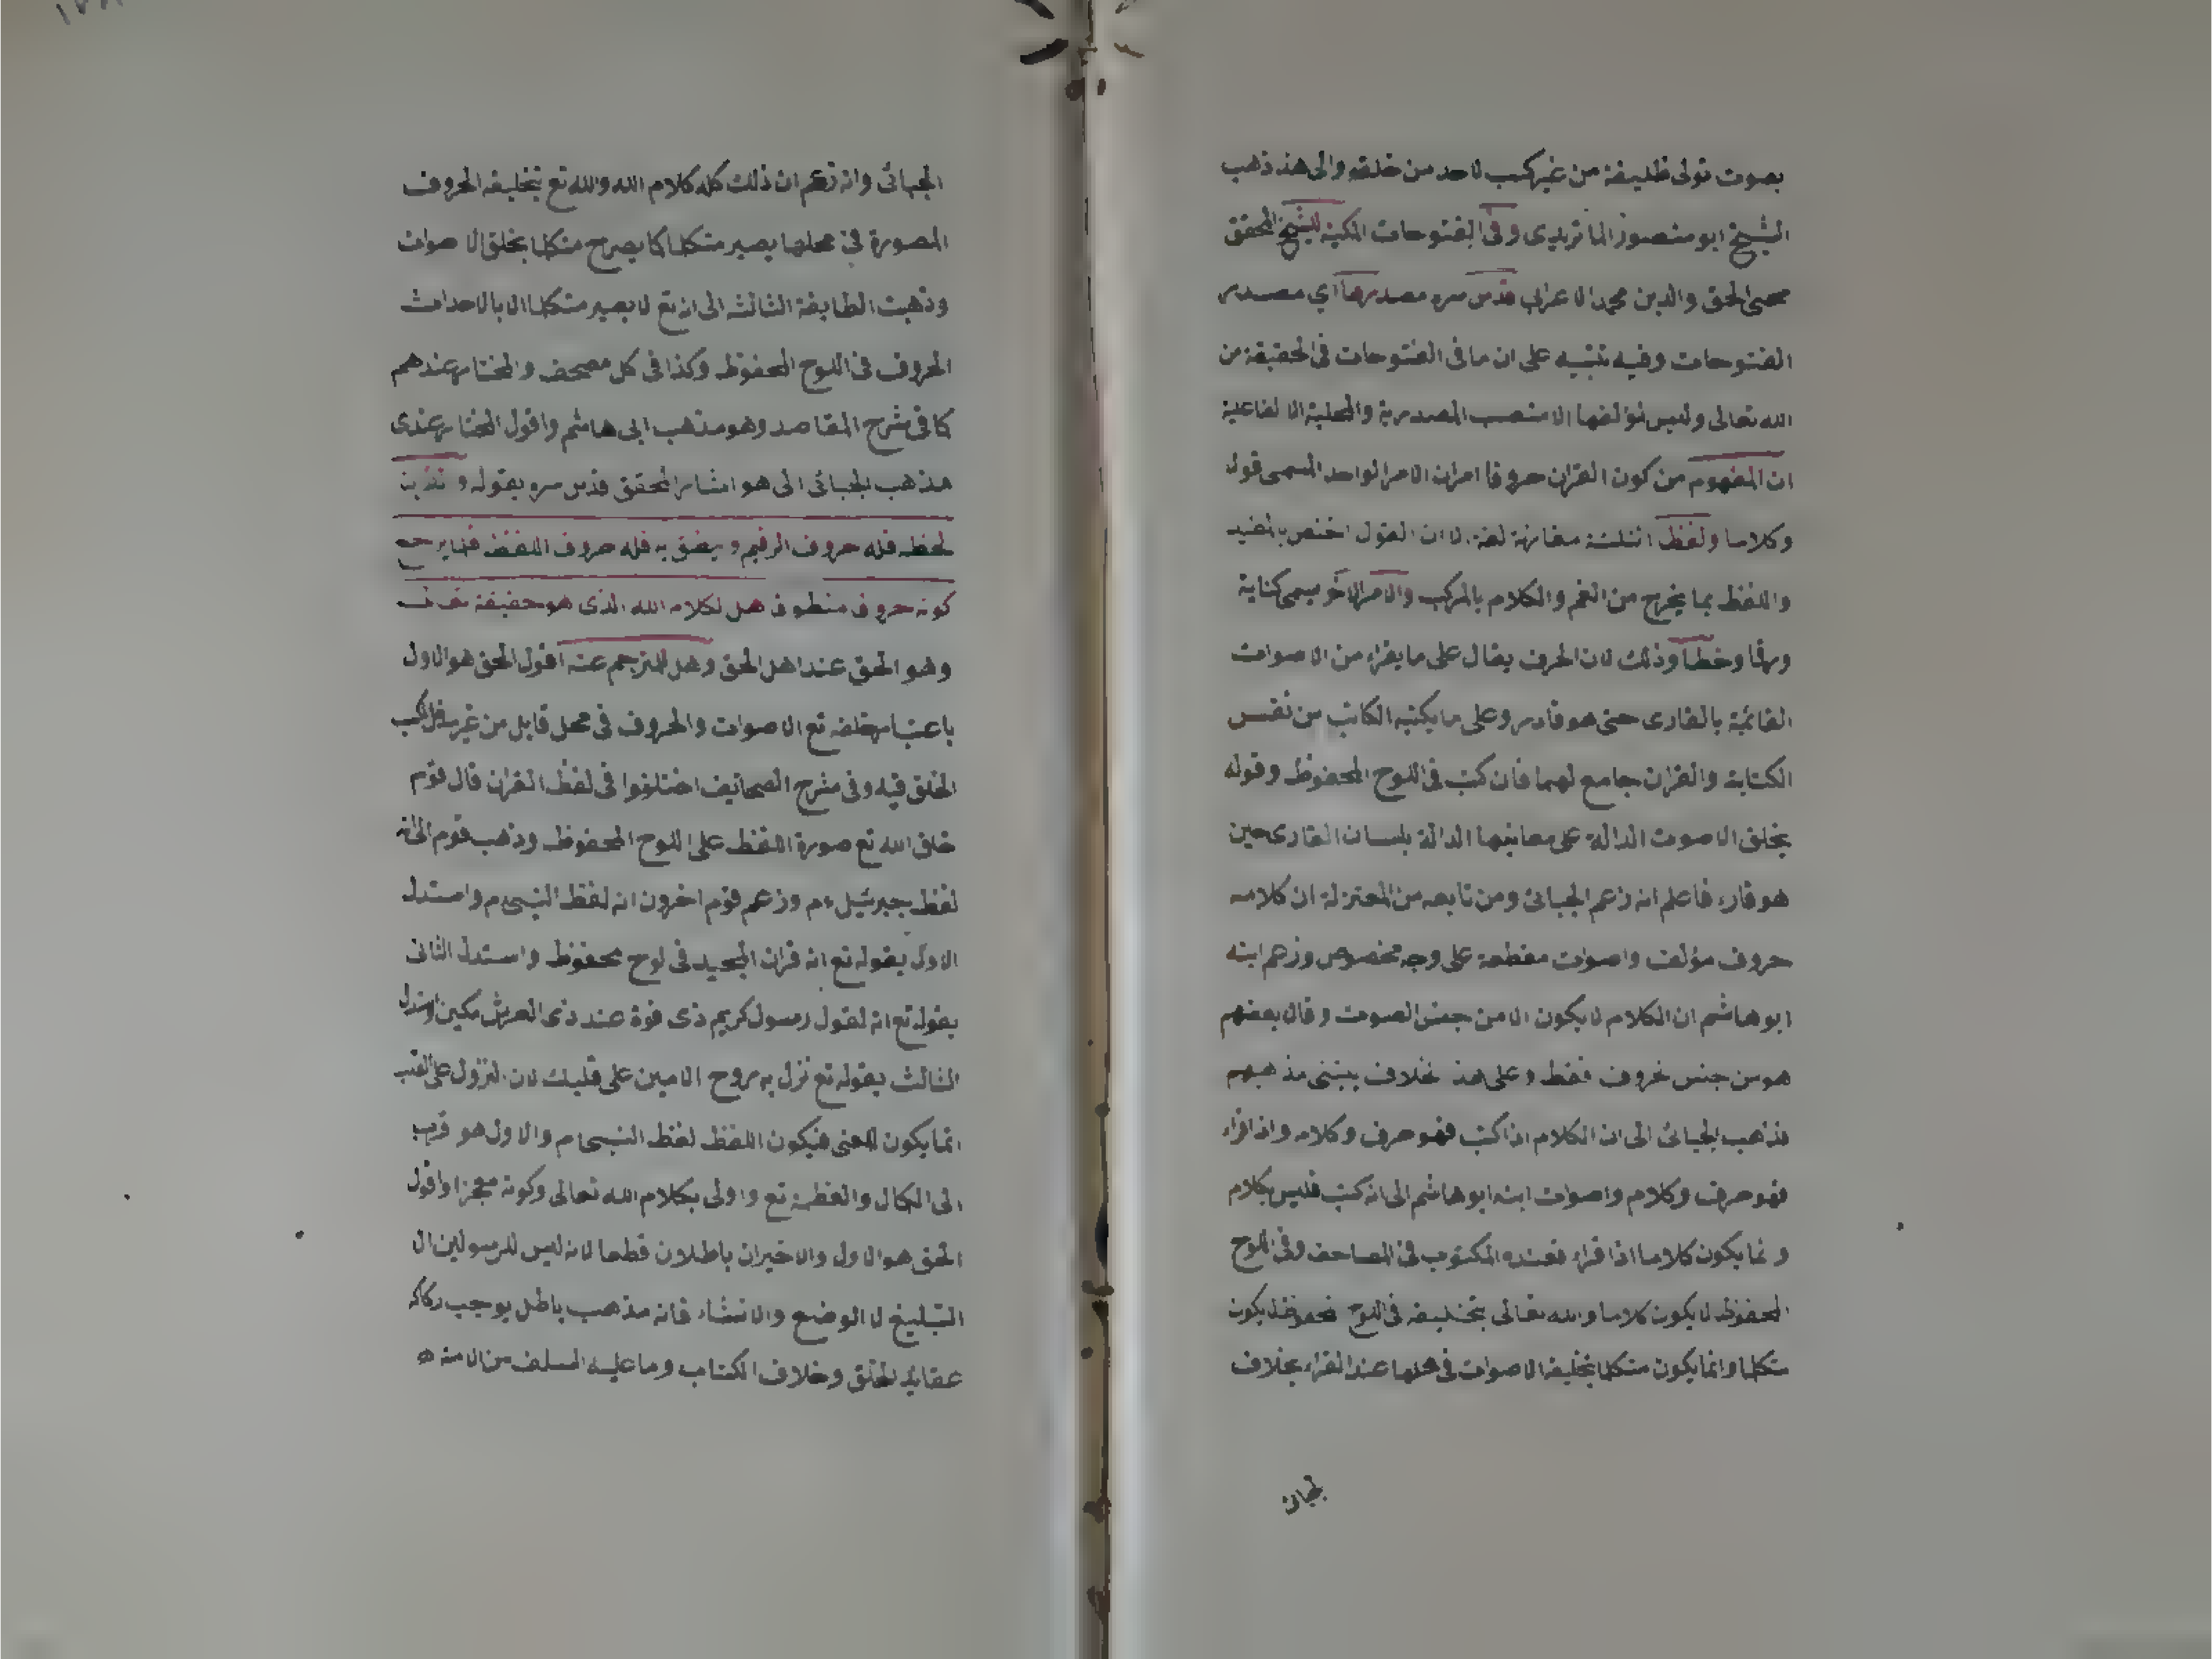 بصوت تولى تخليقه من غير كسب لاحد من خلقه والى هذ ذهب
الشيخ ابو منصور الماتريدى وفى الفتوحات المكية للشيخ المحقق
محيى الحق والدين محمد الاعرابى قدس سره مصدرها اي مصدر
الفتوحات وفيه تنبيه على ان ما فى الفتوحات فى الحقيقة من
الله تعالى وليس لمؤلفها الا منصب المصدرية والمحلية لا الفاعلية
ان المفهوم من كون القران حروفا امران الامر الواحد المسمى قولا
وكلاما ولفظا الثلثة متغايرة لغة لان القول اختص بالمفيد
واللفظ بما يخرج من الفم والكلام بالمركب والامر الاخر يسمى كتابة
ورقما وخطا وذلك لان الحرف يقال على ما يقراء من الاصوات
القائمة بالقارى حتى هو قادر وعلى ما يكتبه الكاتب من نفس
الكتابة والقران جامع لهما فان كتب فى اللوح المحفوظ وقوله
بخلق الاصوت الدالة على معانيها الدالة بلسان القارى حين
هو قارء فاعلم انه زعم الجبائى ومن تابعه من المعتزلة ان كلامه
حروف مؤلفت واصوات مقطعة على وجه مخصوص وزعم ابنه
ابو هاشم ان الكلام لا يكون الا من جنس الصوت وقال بعضهم
هو من جنس الحروف فقط وعلى هذ الخلاف يبتنى مذهبهم
فذهب الجبائى الى ان الكلام اذا كتب فهو حرف وكلام واذا قراء
فهو حرف وكلام واصوات ابنه ابو هاشم الى انه كتب فليس بكلام
وانما يكون كلاما اذا قراء فعنده المكتوب فى المصاحف وفى اللوح
المحفوظ لا يكون كلاما والله تعالى بتخليقه فى اللوح المحفوظ لا يكون
متكلما وانما يكون متكلما بتخليقه الاصوات فى محلها عند القراء بخلاف
الجبائى
الجبائى وانه زعم ان ذلك كله كلام الله والله تع بتخليقه الحروف
المصورة فى محلها يصير متكلما كما يصرح متكلما بخلق الاصوات
وذهبت الطايفة الثالثه الى انه تع لا يصير متكلما الا بالاحداث
الحروف فى اللوح المحفوظ وكذا فى كل مصحف والمختار عندهم
كما فى شرح المقاصد وهو مذهب ابى هاشم واقول المختار عندى
مذهب الجبائى الى هو اشار المحقق قدس سره بقوله و
لحفظه فله حروف الرقيم وينطق به فله حروف اللفظ فلما يرجع
كونه حروف منطوق هل لكلام الله الذى هو حقيقة
وهو الحق عند اهل الحق وهل للمترجم عنه اقول الحق هو الاول
باعتبار خلقه تع الاصوات والحروف فى محل قابل من غير
الخلق فيه وفى شرح الصحائف اختلفوا فى لفظ القران قال قوم
خلق الله تع صورة اللفظ على اللوح المحفوظ وذهب قوم الى انه
لفظ جبرئيل ءم وزعم قوم اخرون انه لفظ النبى م واستدل
الاول بقوله تع انه قران المجيد فى لوح محفوظ واستدل الثانى
بقوله تع انه لقول رسول كريم ذى قوة عند ذى العرش مكين واستدل
الثالث بقوله تع نزل به روح الامين على قلبك لان النزول على القلب
انما يكون المعنى فيكون اللفظ لفظ النبى م والاول هو قرب
الى الكمال والعظمة تع واولى بكلام الله تعالى وكونه معجزا واقول
الحق هو الاول والاخيران باطلان قطعا لانه ليس للرسولين الا
التبليغ لا الوضع والانشاء فانه مذهب باطل يوجب ركاكة
عقايد الخلق وخلاف الكتاب وما عليه السلف من الامة